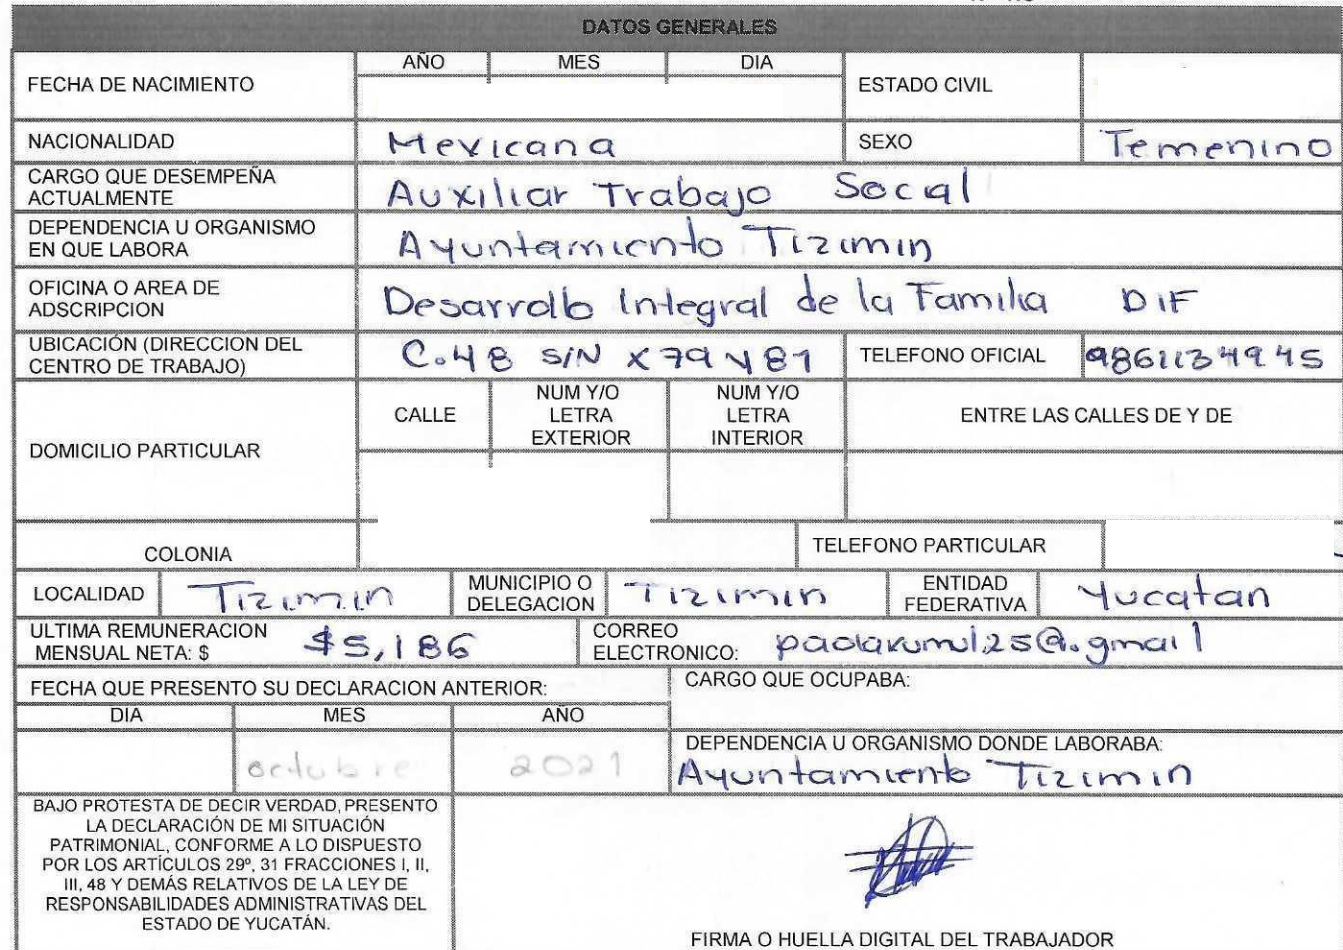 DATOS GENERALES
FECHA DE NACIMIENTO AÑO MES DIA ESTADO CIVIL
NACIONALIDAD Mexicana SEXO Femenino
CARGO QUE DESEMPEÑA
ACTUALMENTE Auxiliar Trabajo Social
DEPENDENCIA U ORGANISMO
EN QUE LABORA Ayuntamiento Tizimin
OFICINA O AREA DE
ADSCRIPCION Desarrollo Integral de la Familia DIF
UBICACIÓN (DIRECCION DEL
CENTRO DE TRABAJO) C.48 S/N x 79 y 81 TELEFONO OFICIAL 9861134945
DOMICILIO PARTICULAR
CALLE
NUM Y/O
LETRA
EXTERIOR
NUM Y/O
LETRA
INTERIOR
ENTRE LAS CALLES DE Y DE
COLONIA TELEFONO PARTICULAR
LOCALIDAD Tizimin MUNICIPIO O
DELEGACION Tizimin ENTIDAD
FEDERATIVA Yucatan
ULTIMA REMUNERACION
MENSUAL NETA: $ $5,186 CORREO
ELECTRONICO:
FECHA QUE PRESENTO SU DECLARACION ANTERIOR: CARGO QUE OCUPABA:
DIA MES AÑO
octubre 2021
DEPENDENCIA U ORGANISMO DONDE LABORABA:
Ayuntamiento Tizimin
BAJO PROTESTA DE DECIR VERDAD, PRESENTO
LA DECLARACIÓN DE MI SITUACIÓN
PATRIMONIAL, CONFORME A LO DISPUESTO
POR LOS ARTÍCULOS 29º, 31 FRACCIONES I, II,
III, 48 Y DEMÁS RELATIVOS DE LA LEY DE
RESPONSABILIDADES ADMINISTRATIVAS DEL
ESTADO DE YUCATÁN.
FIRMA O HUELLA DIGITAL DEL TRABAJADOR